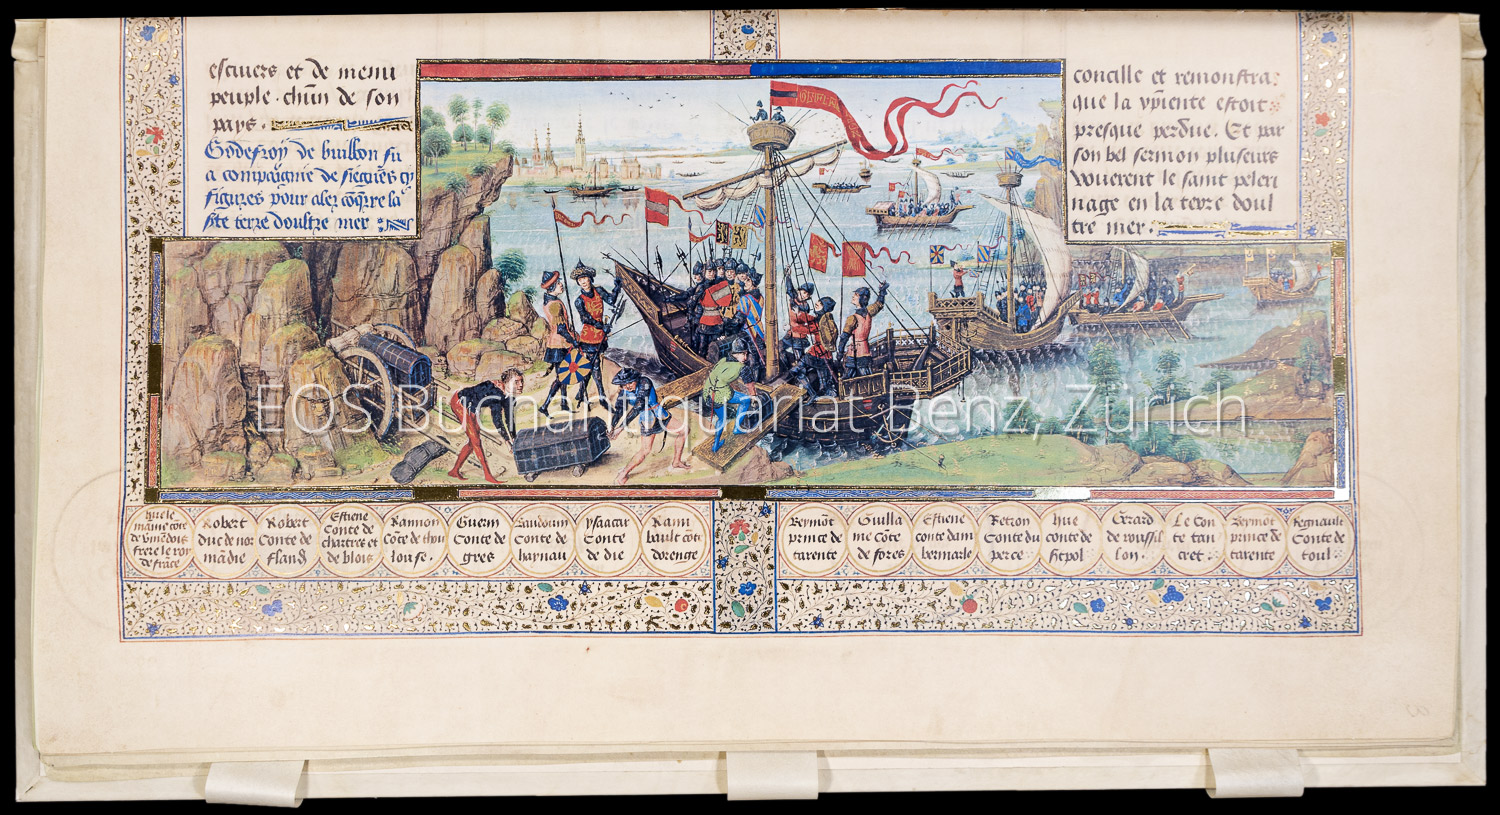 escuiers et de menu
peuple . chun de son
pays .
Godefroy de buillon fu
a compaignie de siecues cy
figures pour aler coqrre la
ste terre doultre mer
concille et remonstra
que la xpiente estoit
presque perdue. Et par
son bel sermon pluseurs
vouerent le saint peleri
nage en la terre doul
tre mer.
EOS Buchantiquariat Benz, Zürich
hue le
maine cote
de vmendois
frere le roy
de frāce
Robert
duc de nor
mādie
Robert
Conte de
fland
Estiene
Conte de
chartres et
de blois
Raimon
Cōte de thou
louse.
Guerin
Conte de
gres
Baudouin
Conte de
haynau
ysaacur
Conte
de die
Raim
bault cōte
dorenge
Beymōt
prince de
tarente
Guilla
me Cōte
de fores
Estiene
conte dam
bermarle
Retron
Conte du
perce
hue
conte de
st pol
Gerard
de roussil
lon.
Le Con
te tan
cret.
Beymōt
prince de
tarente
Regnault
Conte de
toul